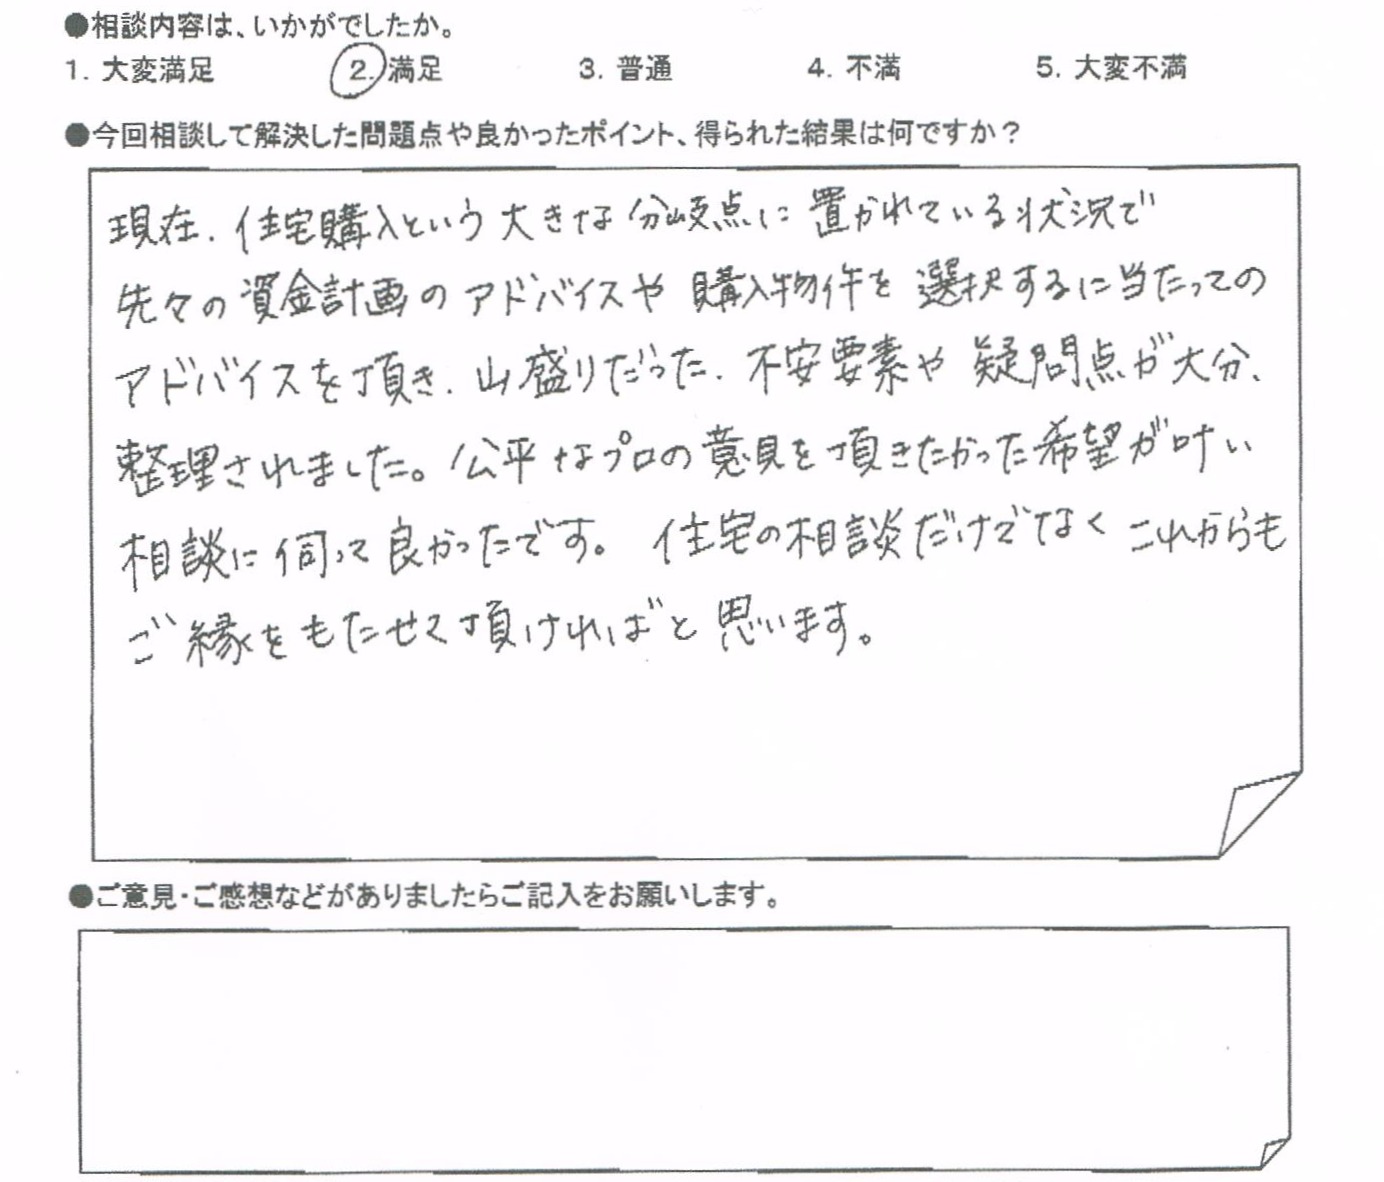 ●相談内容は、いかがでしたか。
1. 大変満足 2. 満足 3. 普通 4. 不満 5. 大変不満
●今回相談して解決した問題点や良かったポイント、得られた結果は何ですか？
現在、住宅購入という大きな分岐点に置かれている状況で
先々の資金計画のアドバイスや購入物件を選択するに当たっての
アドバイスを頂き、山盛りだった、不安要素や疑問点が大分、
整理されました。公平なプロの意見を頂きたかった希望が叶い
相談に伺って良かったです。住宅の相談だけでなくこれからも
ご縁をもたせて頂ければと思います。
●ご意見・ご感想などがありましたらご記入をお願いします。